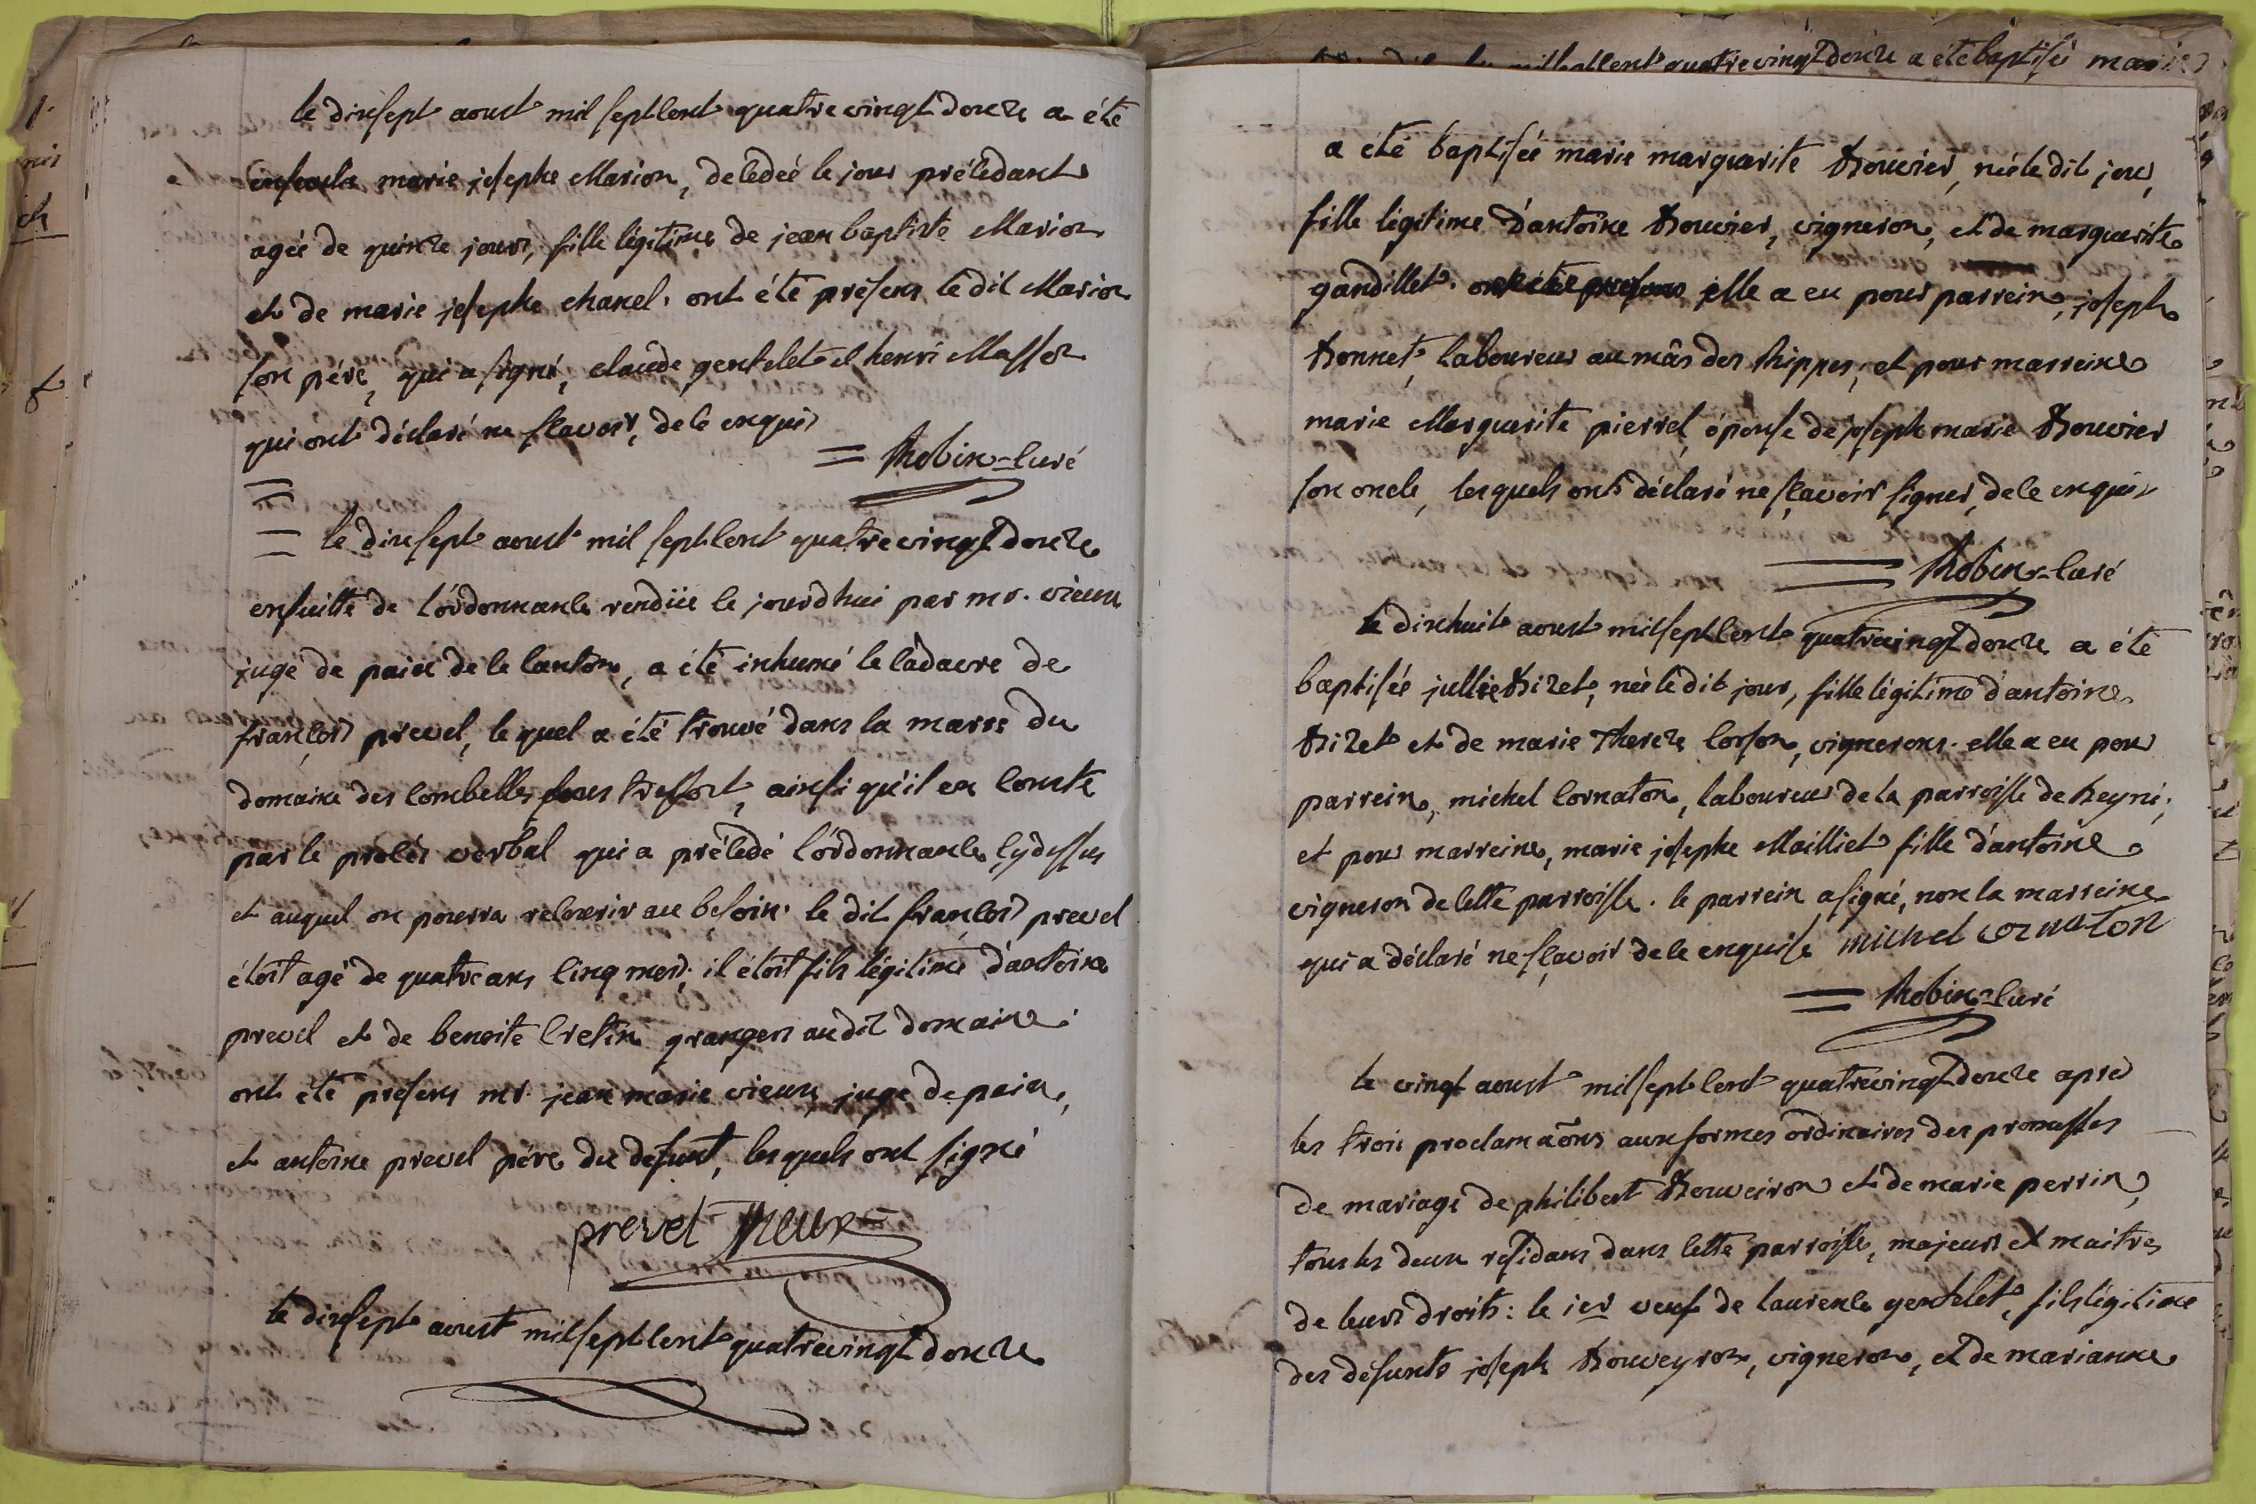 le dixsept aoust mil septcent quatrevingt douze a été
marie josephe Marion, decedeé le jour précedant
ageé de quinze jours, fille légitime de jean baptiste Marion
et de marie josephe chanel. ont été présens le dit Marion
son pére, qui a signé, claude gentelet et henri Masson
qui ont déclaré ne sçavoir, de ce enquis
= Robin-curé
= le dixsept aoust mil septcent quatrevingt douze
ensuitte de l'ordonnance rendüe le jourdhui par mr. vieux
juge de paix de ce canton, a été inhumé le cadavre de
françois prevel, le quel a été trouvé dans la marre du
domaine des combelles sous treffort, ainsi qu'il en conste
par le procés verbal qui a précedé l'ordonnance cydessus
et auquel on pourra recourir au besoin. le dit françois prevel
étoit agé de quatre ans cinq mois; il étoit fils légitime d'antoine
prevel et de benoite Cretin grangers audit domaine.
ont été présens mr. jean marie vieux juge de paix,
et antoine prevel pére du defunt, lesquels ont signé
prevel Vieux
le dixsept aoust milseptcent quatrevingt douze
quatrevingt douze a été baptisé marie
a été baptisée marie marguerite Bouvier, née le dit jour,
fille légitime d'antoine Bouvier, vigneron, et de marguerite
gandillet. ont été présens elle a eu pour parrein, joseph
Bonnet, laboureur au mâs des Rippes; et pour marreine
marie Marguerite pierrel, épouse de joseph marie Bouvier
son oncle, lesquels ont déclaré ne sçavoir signer, de ce enquis
= Robin-curé
le dixhuit aoust milseptcent quatrevingt douze a été
baptisée jullie Bizet, née le dit jour, fille légitime d'antoine
Bizet et de marie Thereze Corson, vignerons. elle a eu pour
parrein, michel Cornaton, laboureur de la parroisse de Meyria;
et pour marreine, marie josephe Mailliet fille d'antoine
vigneron de cette parroisse. le parrein a signé, non la marreine
qui a déclaré ne sçavoir de ce enquise michel cornaton
= Robin-curé
le vingt aoust milseptcent quatrevingt douze aprés
les trois proclamãons aux formes ordinaires des promesses
de mariage de philibert Bouveiron et de marie perrin,
tous les deux residans dans cette parroisse, majeurs et maitres
de leurs droits: le 1er veuf de laurence gentelet, fils légitime
des défunts joseph Bouveyron, vigneron, et de marianne